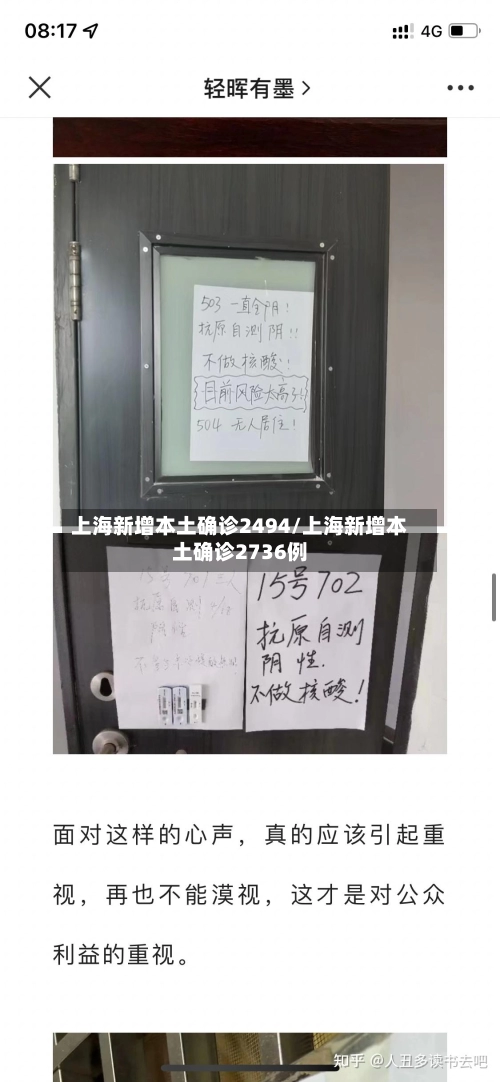 08:17
4G
轻晖有墨
503 一直全阴！
抗原自测 阴！！
不做核酸！
目前风险太高了！
504 无人居住！
上海新增本土确诊2494/上海新增本
土确诊2736例
15号702
抗原自测
阴性.
不做核酸！
面对这样的心声，真的应该引起重
视，再也不能漠视，这才是对公众
利益的重视。
知乎 @人丑多读书去吧